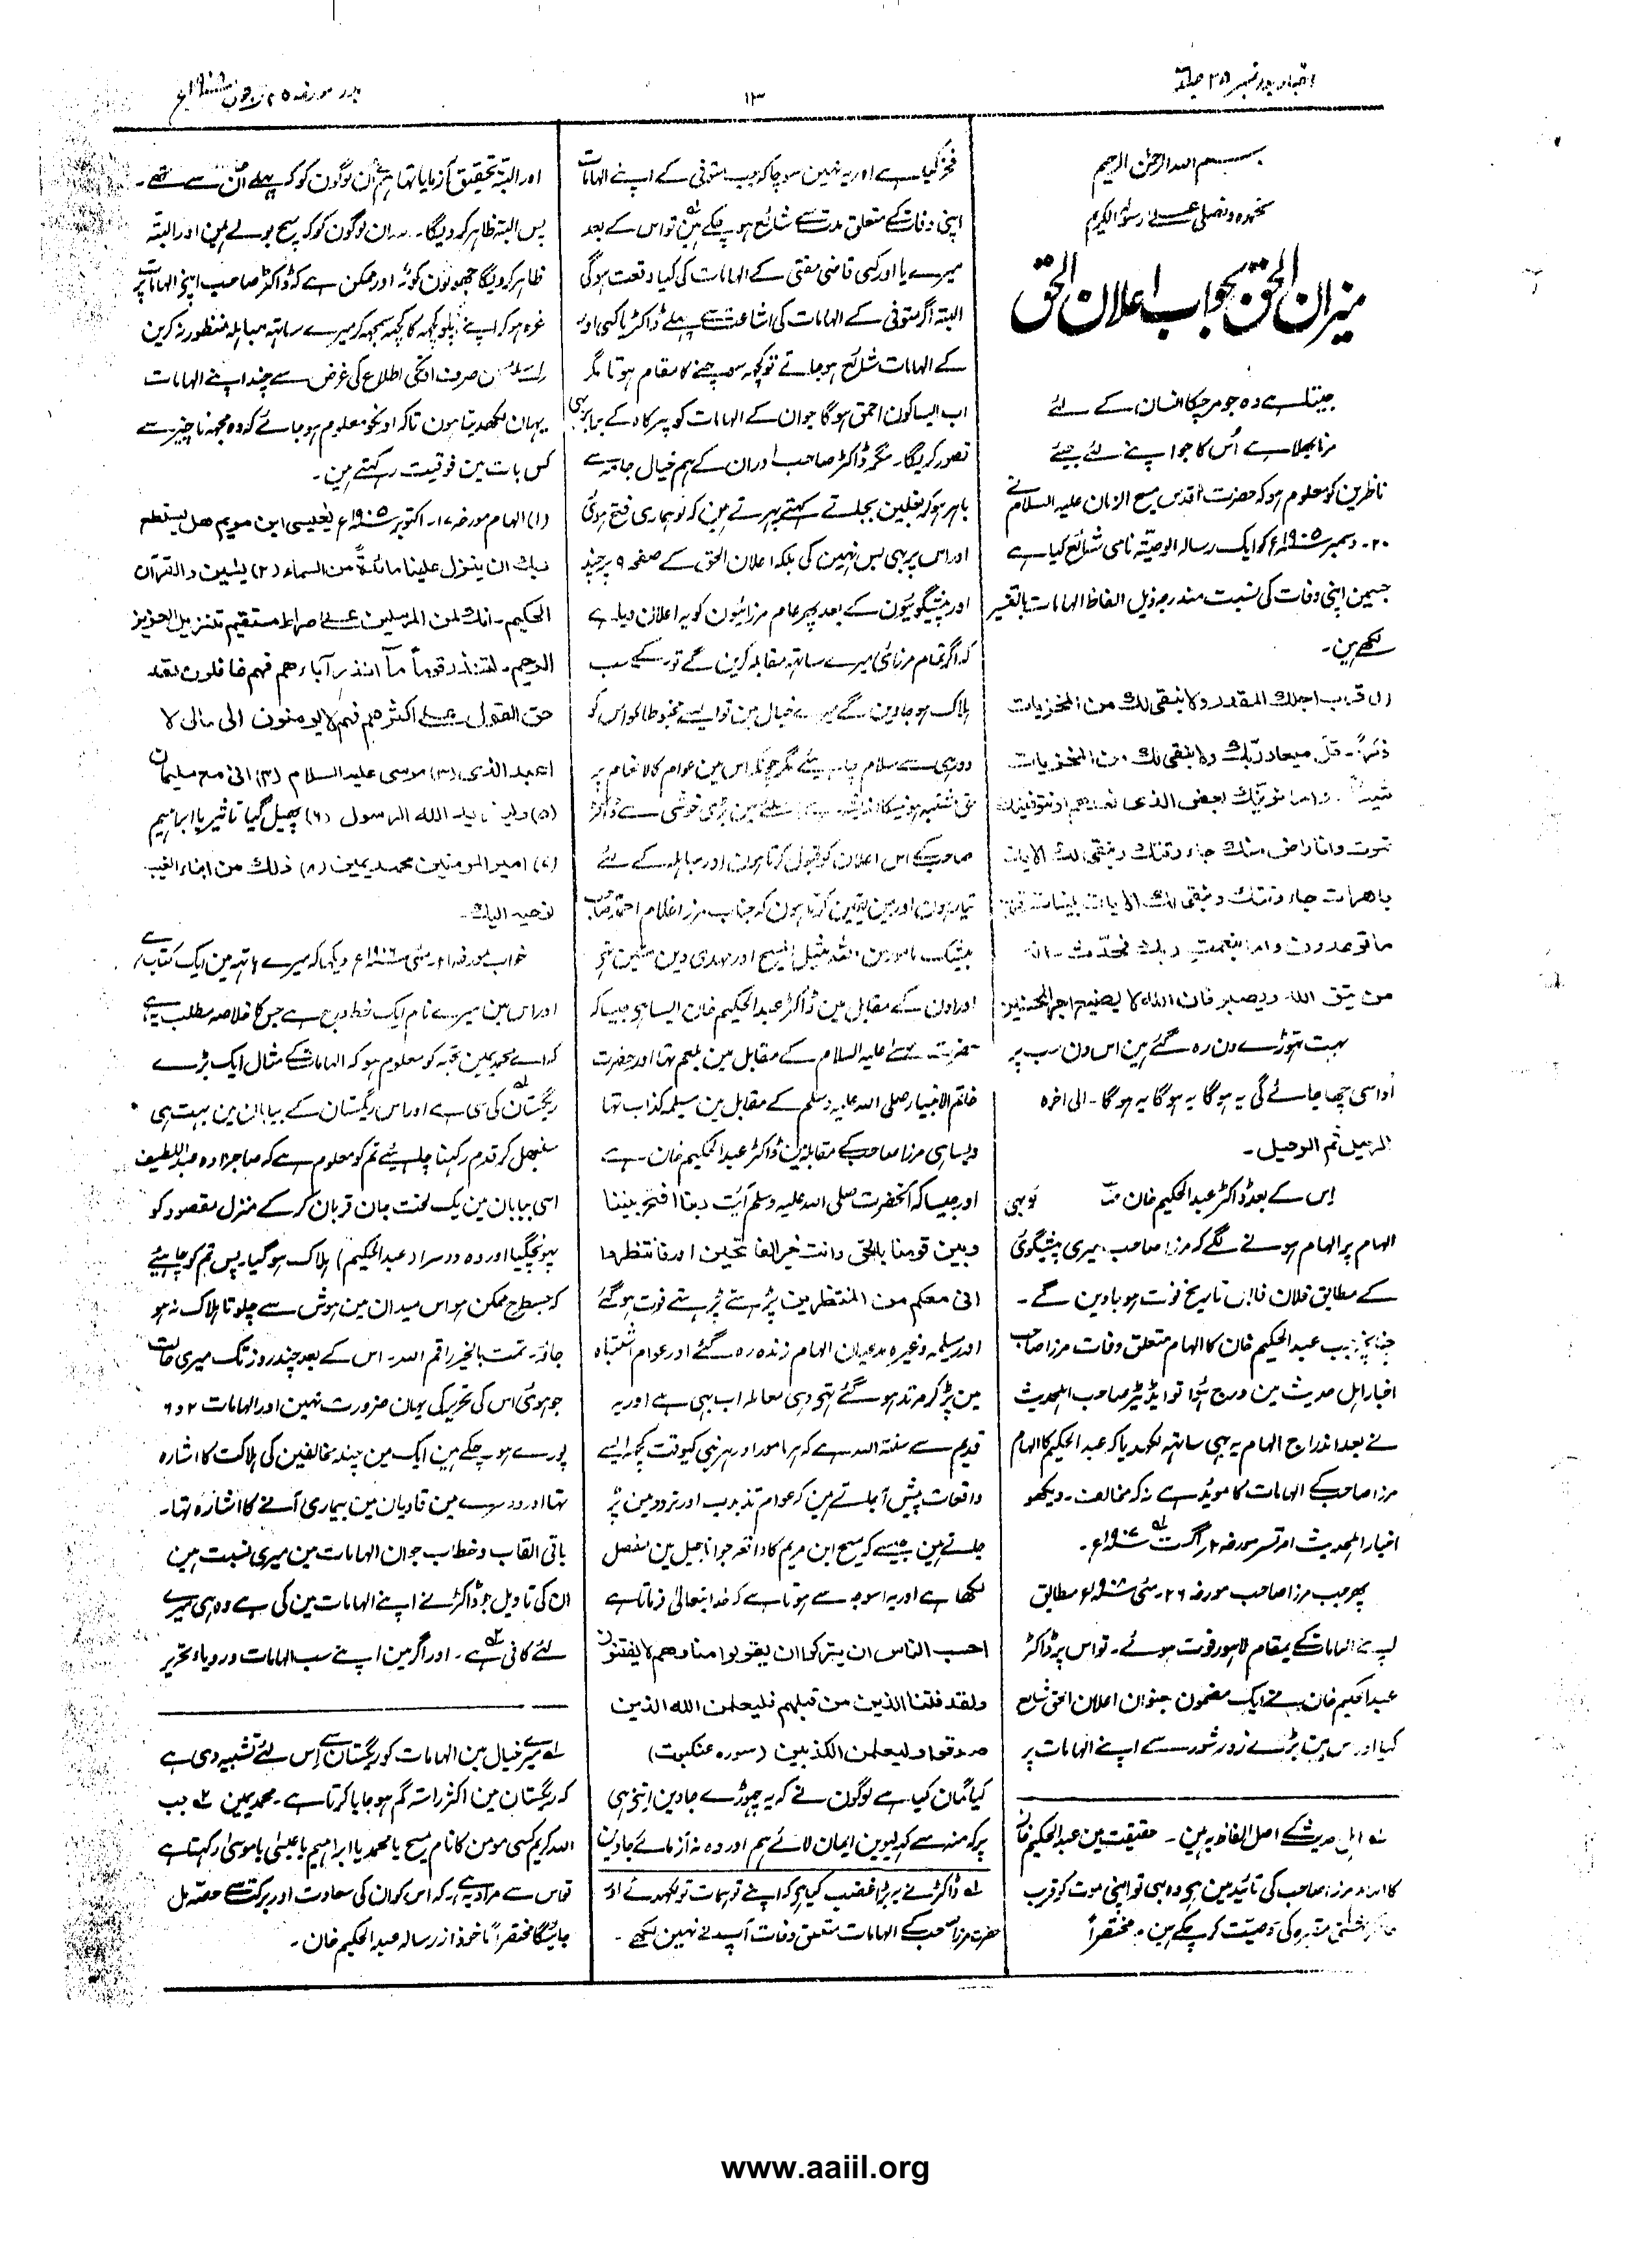 اخبار بدر نمبر ۲۵ جلد
۱۳
بدر مورخہ ۲۵ جون ۱۹۰۸ء
بسم اللہ الرحمن الرحیم
نحمدہ و نصلی علےٰ رسولہ الکریم
میزان الحق بجواب اعلان الحق
جیتا ہے وہ جو مر چکا انسان کے لئے
مرنا بھلا ہے اُس کا جو اپنے لئے جیئے
ناظرین کو معلوم ہو کہ حضرت اقدس مسیح الزمان علیہ السلام نے
۲۰۔ دسمبر ۱۹۰۵ء کو ایک رسالہ الوصیّتہ نامی شائع کیا ہے
جسمین اپنی وفات کی نسبت مندرجہ ذیل الفاظ الہامات بالتفسیر
لکھے ہین۔
قرب اجلك المقدر ولا نبقی لك من المخزیات
ذکراً۔ قل میعاد ربّك ولا نبقی لك من المخزیات
شیئاً۔ واما نرینّك بعض الذی نعدهم او نتوفینك
تموت وانا راض منك جاء وقتك و نبقی لك الآیات
باهرات جاء وقتك و نبقی لك الآیات بینات قرب
ما توعدون واما بنعمت ربك فحدّث۔ انہ
من یتق الله ویصبر فان الله لا یضیع اجر المحسنین
بہت تہوڑے دن رہ گئے ہین اس دن سب پر
اُداسی چھا جائے گی یہ ہوگا یہ ہوگا یہ ہوگا۔ الی اخرہ
الرحیل ثم الرحیل۔
اِس کے بعد ڈاکٹر عبدالحکیم خان کو بہی
الہام پر الہام ہونے لگے کہ مرزا صاحب میری پیشگوئی
کے مطابق فلان فلان تاریخ فوت ہو جاوین گے۔
چنانچہ جب عبدالحکیم خان کا الہام متعلق وفات مرزا صاحب
اخبار اہل حدیث مین درج ہُوا تو ایڈیٹر صاحب اہلحدیث
نے بعد اندراج الہام یہ بہی ساتہہ لکھدیا کہ عبدالحکیم کا الہام
مرزا صاحب کے الہامات کا مویّد ہے نہ کہ مخالف۔ دیکھو
اخبار اہلحدیث امرتسر مورخہ ۲ اگست ۱۹۰۷ء۔
پھر جب مرزا صاحب مورخہ ۲۶۔ مئی ۱۹۰۸ء مطابق
اپنے الہامات کے بمقام لاہور فوت ہوئے۔ تو اس پر ڈاکٹر
عبدالحکیم خان نے ایک مضمون بعنوان اعلان الحق شایع
کیا اور اس مین بڑے زور شور سے اپنے الہامات پر
اہل حدیث کے اصل الفاظ یہ ہین۔ حقیقت مین عبدالحکیم خان
کا الہام مرزا صاحب کی تائید مین ہے وہ بہی تو اپنی موت کو قریب
بہشتی مقبرہ کی وصیّت کر چکے ہین۔ مختصراً
فخر کیا ہے اور یہ نہین سوچا کہ جب متوفی کے اپنے الہامات
اپنی وفات کے متعلق مدت سے شائع ہو چکے ہین تو اس کے بعد
میرے یا اور کسی قاضی مفتی کے الہامات کی کیا وقعت ہوگی
البتہ اگر متوفی کے الہامات کی اشاعت سے پہلے ڈاکٹر یا کسی اور
کے الہامات شائع ہو جاتے تو کچہہ سوچنے کا مقام ہوتا مگر
اب ایسا کون احمق ہوگا جو ان کے الہامات کو پرکاہ کے برابر بہی
تصور کریگا۔ مگر ڈاکٹر صاحب اور ان کے ہم خیال جامہ سے
باہر ہو کر بغلین بجاتے کہتے پہرتے ہین کہ لو ہماری فتح ہوئی
اور اس پر بہی بس نہین کی بلکہ اعلان الحق کے صفحہ ۹ پر چند
اور پیشگوئیون کے بعد پہر عام مرزائیون کو یہ اعلان دیا ہے
کہ اگر تمام مرزائی میرے ساتہہ مقابلہ کرین گے تو سب کے سب
ہلاک ہو جاوین گے میرے خیال مین تو ایسے مخبوط الحواس کو
دور ہی سے سلام چاہیئے مگر چونکہ اس مین عوام کالانعام پر
حق مشتبہ ہونیکا اندیشہ ہے اس لئے مین بڑی خوشی سے ڈاکٹر
صاحب کے اس اعلان کو قبول کرتا ہون اور مباہلہ کے لئے
تیار ہون اور مین یقین کرتا ہون کہ جناب مرزا غلام احمد صاحب
بیشک مامور من اللہ مثیل المسیح اور مہدی دین متین تہے
اور اون کے مقابل مین ڈاکٹر عبدالحکیم خان ایسا ہی جیسا کہ
حضرت موسےٰ علیہ السلام کے مقابل مین بلعم تہا اور حضرت
خاتم الانبیاء صلی اللہ علیہ وسلم کے مقابل مین مسیلمہ کذاب تہا
ویسا ہی مرزا صاحب کے مقابلہ مین ڈاکٹر عبدالحکیم خان ہے
اور جیسا کہ آنحضرت صلی اللہ علیہ وسلم آیت ربنا افتح بیننا
و بین قومنا بالحق وانت خیر الفاتحین اور فانتظروا
انی معکم من المنتظرین پڑہتے پڑہتے فوت ہوگئے
اور مسیلمہ وغیرہ مدعیان الہام زندہ رہ گئے اور عوام اشتباہ
مین پڑ کر مرتد ہو گئے تہے وہی معاملہ اب بہی ہے اور یہ
قدیم سے سنتہ اللہ ہے کہ ہر مامور اور ہر نبی کیوقت کچہہ ایسے
واقعات پیش آجاتے ہین کہ عوام تذبذب اور تردد مین پڑ
جاتے ہین جیسے کہ مسیح ابن مریم کا واقعہ جو اناجیل مین مفصل
لکھا ہے اور یہ اسوجہ سے ہوتا ہے کہ خدا تعالیٰ فرماتا ہے
احسب الناس ان یترکوا ان یقولوا امنا وهم لا یفتنون
ولقد فتنا الذین من قبلهم فلیعلمن الله الذین
صدقوا ولیعلمن الکذبین (سورہ عنکبوت)
کیا گمان کیا ہے لوگون نے کہ یہ چہوڑے جاوین اتنے ہی
پر کہ منہ سے کہہ لیوین ایمان لائے ہم اور وہ نہ آزمائے جاوین
ڈاکٹر نے یہ بڑا غضب کیا ہے کہ اپنے توہمات تو لکھدئے اور
حضرت مرزا صاحب کے الہامات متعلق وفات آپ نے نہین لکھے۔
اور البتہ تحقیق آزمایا تہا ہم نے اُن لوگون کو کہ پہلے ان سے تھے۔
پس البتہ ظاہر کر دیگا اللہ ان لوگون کو کہ سچ بولے ہین اور البتہ
ظاہر کر دیگا جہوٹون کو۔ اور ممکن ہے کہ ڈاکٹر صاحب اپنے الہامات پر
غرہ ہو کر اپنے آپکو کچہہ کا کچہہ سمجہہ کر میرے ساتہہ مباہلہ منظور نہ کرین
اس لئے مین صرف اونکی اطلاع کی غرض سے چند اپنے الہامات
یہان لکھدیتا ہون تاکہ اونکو معلوم ہو جائے کہ وہ مجہہ ناچیز سے
کس بات مین فوقیت رکہتے ہین۔
(۱) الہام مورخہ ۱۷۔ اکتوبر ۱۹۰۵ء یٰعیسی ابن مریم هل یستطیع
ربك ان ینزل علینا مائدةً من السماء (۲) یٰسین والقرآن
الحکیم۔ انك لمن المرسلین علےٰ صراط مستقیم تنزیل العزیز
الرحیم۔ لتنذر قوماً ما انذر آباءهم فهم غافلون لقد
حق القول علےٰ اکثرهم فهم لا یومنون الی مالی لا
اعبد الذی (۳) موسی علیہ السلام (۴) انی مع سلیمان
(۵) الله الرسول (۶) پھیل گیا تاثیر یا ابراہیم
(۷) امیر المومنین محمد یمین (۸) ذلك من انباء الغیب
نوحیہ الیك۔
خواب مورخہ مئی ۱۹۰۶ء دیکھا کہ میرے ہاتہہ مین ایک کتاب ہے
اور اس مین میرے نام ایک خط درج ہے جس کا خلاصہ مطلب یہ ہے
کہ اے محمد یمین تجہہ کو معلوم ہو کہ الہامات کے مثال ایک بڑے
ریگستان کی سی ہے اور اس ریگستان کے بیابان مین بہت ہی
سنبھل کر قدم رکہنا چاہیئے تم کو معلوم ہے کہ صاحبزادہ عبداللطیف
اسی بیابان مین یک لخت جان قربان کر کے منزل مقصود کو
پہونچگیا اور وہ دوسرا (عبدالحکیم) ہلاک ہو گیا۔ پس تم کو چاہیئے
کہ جسطرح ممکن ہو اس میدان مین ہوش سے چلو تا ہلاک نہ ہو
جاؤ۔ تمت بالخیر راقم اللہ۔ اس کے بعد چند روز تک میری حالت
جو ہوئی اس کی تحریر کی یہان ضرورت نہین اور الہامات ۲ و ۶
پورے ہو چکے ہین ایک مین چند مخالفین کی ہلاکت کا اشارہ
تہا اور دوسرے مین قادیان مین بیماری آنے کا اشارہ تہا۔
باقی القاب و خطاب جو ان الہامات مین میری نسبت ہین
ان کی تاویل جو ڈاکٹر نے اپنے الہامات مین کی ہے وہ ہی میرے
لئے کافی ہے۔ اور اگر مین اپنے سب الہامات و رویاء تحریر
میرے خیال مین الہامات کو ریگستان سے اِس لئے تشبیہ دی ہے
کہ ریگستان مین اکثر راستہ گم ہو جایا کرتا ہے۔ محمد یمین جب
اللہ کریم کسی مومن کا نام مسیح یا محمد یا ابراہیم یا عیسیٰ یا موسیٰ رکہتا ہے
تو اس سے مراد یہ ہے کہ اس کو ان کی سعادت اور برکت سے حصہ مل
جائیگا مختصراً ماخوذ از رسالہ عبدالحکیم خان۔
www.aaiil.org